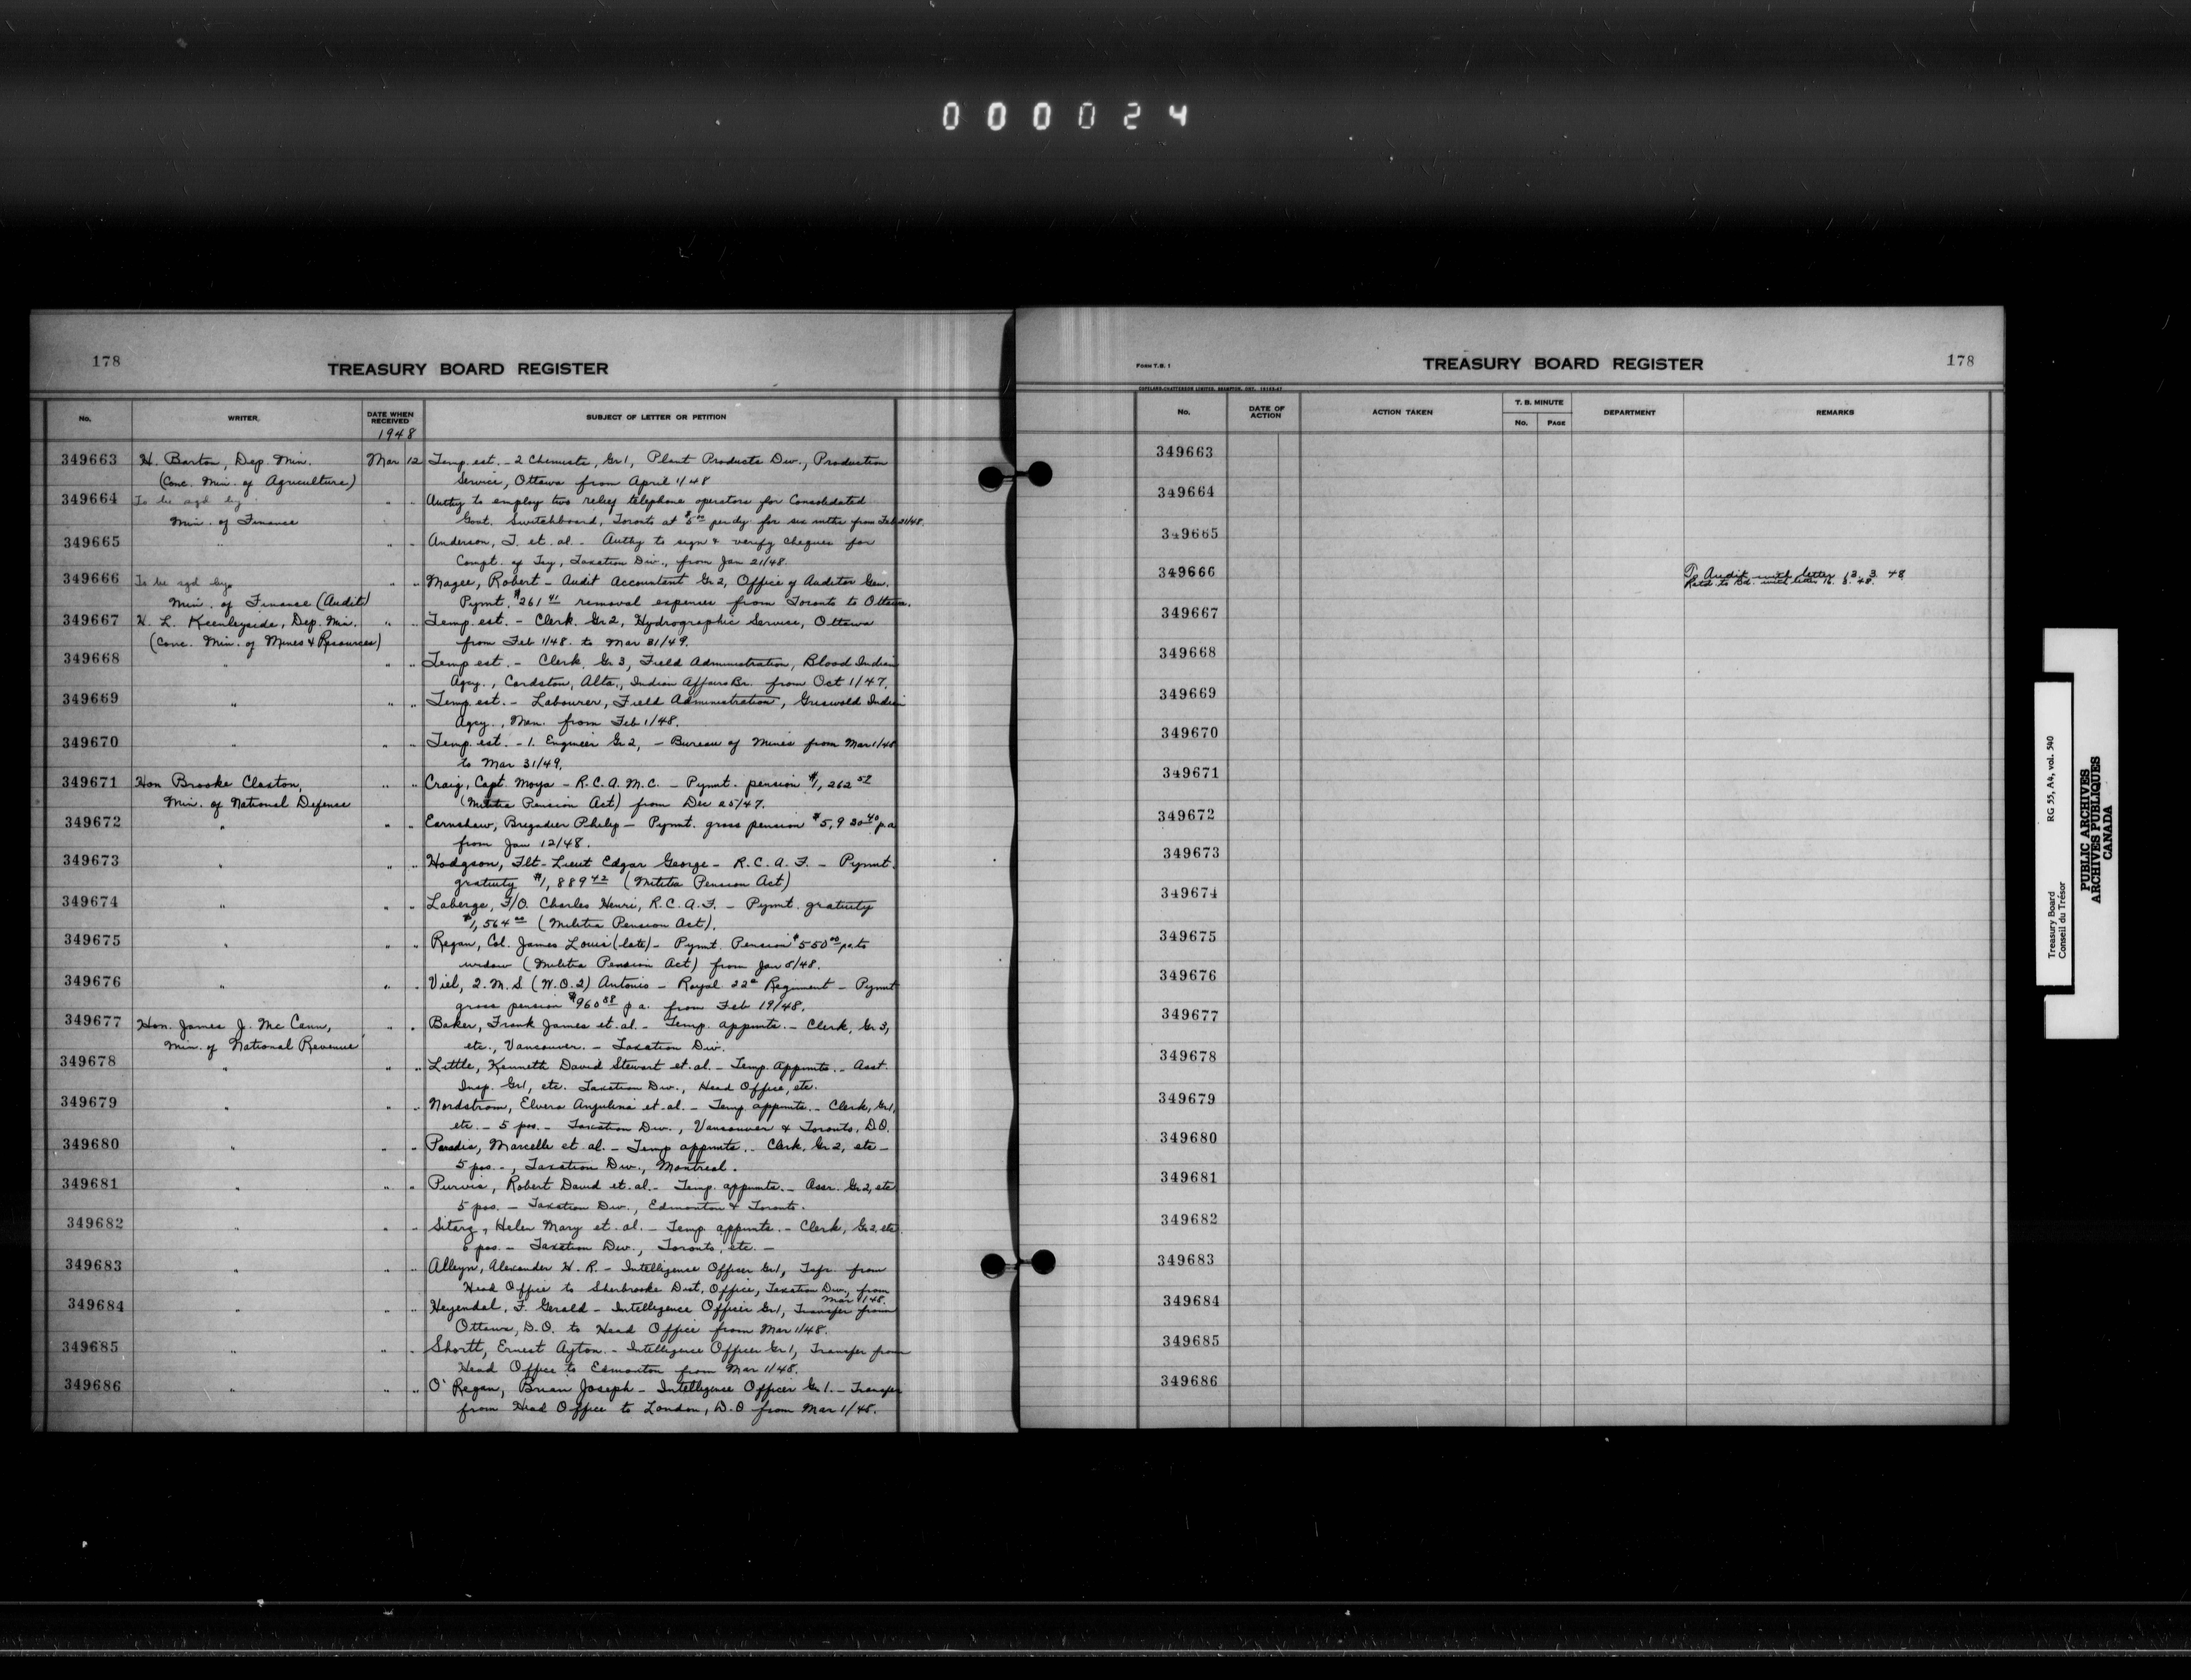 000024
178
TREASURY BOARD REGISTER
No.
WRITER
DATE WHEN RECEIVED
SUBJECT OF LETTER OR PETITION
1948
349663 H. Barton, Dep. Min. Mar 12 Temp. est. - 2 Chemists, Gr 1, Plant Products Div., Production
(Conc. Min. of Agriculture) Service, Ottawa from April 1/48
349664 To be sgd by " " Authy to employ two relief telephone operators for Consolidated
Min. of Finance Govt. Switchboard, Toronto at $5.00 per dy. for six mths from Feb 21/48.
349665 " " " Anderson, T. et. al. - Authy to sign & verify cheques for
Compt. of Tsy, Taxation Div., from Jan 21/48.
349666 To be sgd by " " Magee, Robert - Audit Accountant Gr 2, Office of Auditor Gen.
Min. of Finance (Audit) Pymt. $261 41 removal expenses from Toronto to Ottawa.
349667 H. L. Keenleyside, Dep. Min. " " Temp. est. - Clerk Gr 2, Hydrographic Service, Ottawa
(Conc. Min. of Mines & Resources) from Feb 1/48. to Mar 31/49.
349668 " " " Temp est. - Clerk, Gr 3, Field Administration, Blood Indian
Agcy., Cardston, Alta., Indian Affairs Br. from Oct 1/47.
349669 " " " Temp. est. - Labourer, Field Administration, Griswold Indian
Agcy., Man. from Feb 1/48.
349670 " " " Temp. est. - 1. Engineer Gr 2, - Bureau of Mines from Mar 1/48
to Mar 31/49.
349671 Hon Brooke Claxton, " " Craig, Capt. Moya - R.C.A.M.C. - Pymt. pension $1,262
Min. of National Defense (Militia Pension Act) from Dec 25/47.
349672 " " " Earnshaw, Brigadier Philip - Pymt. gross pension $5,930 40 p.a
from Jan 12/48.
349673 " " " Hodgson, Flt-Lieut Edgar George - R.C.A.F. - Pymt.
gratuity $1,889 42 (Militia Pension Act)
349674 " " " Laberge, F/O. Charles Henri, R.C.A.F. - Pymt. gratuity
$1,564 00 (Militia Pension Act).
349675 " " " Regan, Col. James Louis (late) - Pymt. Pension $550 00 pa. to
widow (Militia Pension Act) from Jan 8/48.
349676 " " " Viel, Q.M.S. (W.O.2) Antonio - Royal 22e Regiment - Pymt
gross pension $960 58 p a. from Feb 19/48.
349677 Hon. James J. McCann, " " Baker, Frank James et. al. - Temp. appmts. - Clerk, Gr 3,
Min. of National Revenue etc., Vancouver. - Taxation Div.
349678 " " " Little, Kenneth David Stewart et. al. - Temp. Appmts. - Asst.
Insp. Gr 1, etc. Taxation Div., Head Office, etc.
349679 " " " Nordstrom, Elvera Angulina et. al. - Temp. appmts. - Clerk, Gr 1,
etc. - 5 pos. - Taxation Div., Vancouver & Toronto, D.O.
349680 " " " Paradis, Marcelle et. al. - Temp appmts. - Clerk, Gr 2, etc -
5 pos. -, Taxation Div., Montreal.
349681 " " " Purvis, Robert David et. al. - Temp. appmts. - Assr. Gr 2, etc
5 pos. - Taxation Div., Edmonton & Toronto.
349682 " " " Sitarz, Helen Mary et. al. - Temp. appmts. - Clerk, Gr 2, etc.
6 pos. - Taxation Div., Toronto, etc. -
349683 " " " Alleyn, Alexander W. R. - Intelligence Officer Gr 1, Tsfr. from
Head Office to Sherbrooke Dist. Office, Taxation Div., from
Mar 1/48.
349684 " " " Heyendal, F. Gerald - Intelligence Officer Gr 1, Transfer from
Ottawa, D.O. to Head Office from Mar 1/48.
349685 " " " Shortt, Ernest Ayton. - Intelligence Officer Gr 1, Transfer from
Head Office to Edmonton from Mar 1/48.
349686 " " " O'Regan, Brian Joseph - Intelligence Officer Gr 1. - Transfer
from Head Office to London, D.O from Mar 1/48.
FORM T.B. 1
TREASURY BOARD REGISTER
178
COPELAND-CHATTERSON LIMITED, BRAMPTON, ONT.
No.
DATE OF ACTION
ACTION TAKEN
T. B. MINUTE
No.
PAGE
DEPARTMENT
REMARKS
349663
349664
349665
349666 To Audit with letter 13. 3. 48
Retd to Bd. with letter 16. 3. 48.
349667
349668
349669
349670
349671
349672
349673
349674
349675
349676
349677
349678
349679
349680
349681
349682
349683
349684
349685
349686
Treasury Board RG 55, A4, vol. 540
Conseil du Trésor
PUBLIC ARCHIVES
ARCHIVES PUBLIQUES
CANADA